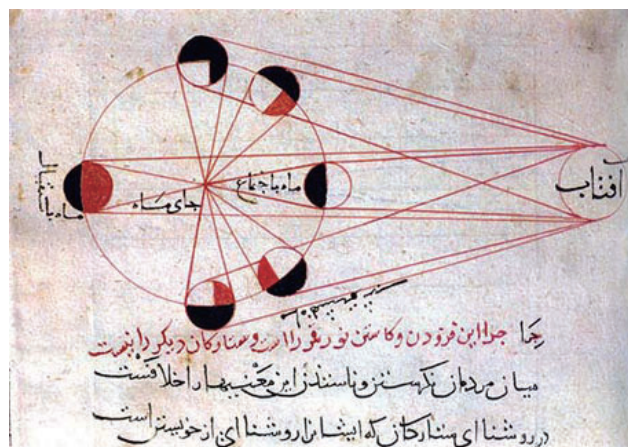 افتاب
ماه باجتماع
جای ماه
ماه باستقبال
چرا چرا این فزودن و کاستن نور قمر را است و ستارکان دیکر را نیست
میان مردمان این معنیها را خلافست
در روشنا ی ستارکان که ایشانرا روشنا ی از خویشتن است